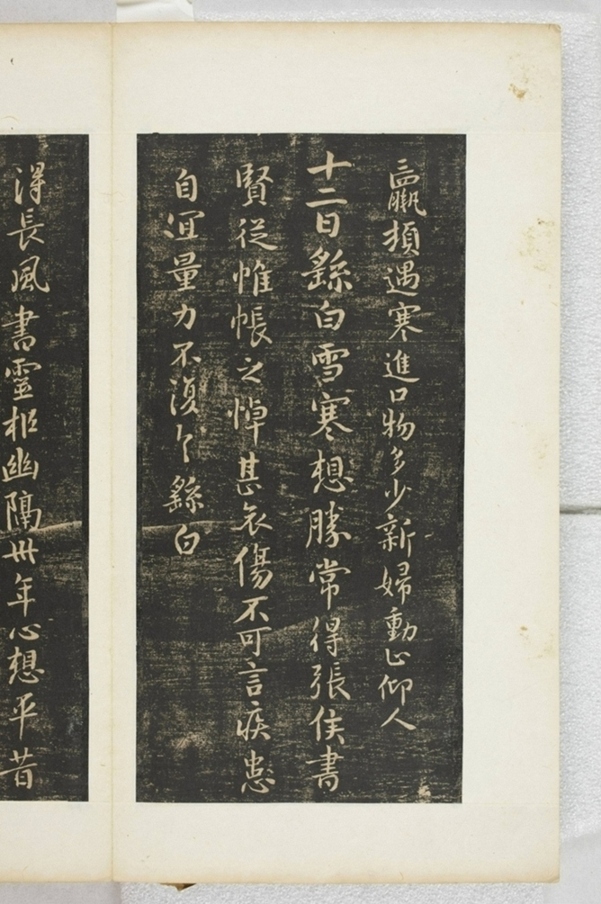 羸頓遇寒進口物多少新婦動止仰人
十二日繇白雪寒想勝常得張侯書
賢從帷帳之悼甚哀傷不可言疾患
自宜量力不復繇白
得長風書靈柩幽隔卅年心想平昔